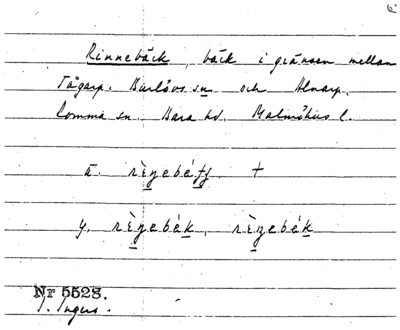 Rinnebäck, bäck i gränsen mellan
Tågarp. Burlövs sn och Alnarp.
Lomma sn. Bara hd. Malmöhus l.
ä. +
y.
Nr 5528.
I. Ingers.